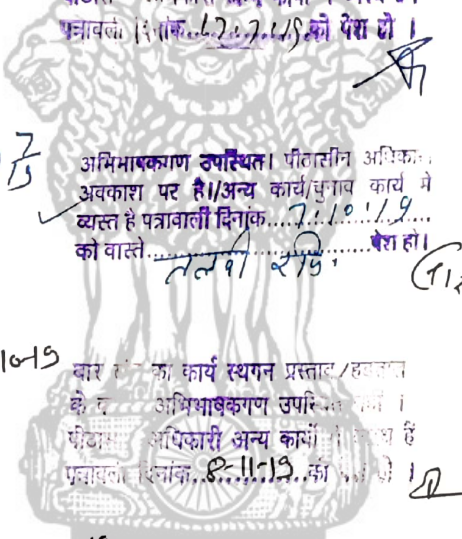 पत्रावली दिनांक..17.7.19.को पेश हो ।
7
19
अभिभाषकगण उपस्थित। पीठासीन
अवकाश पर है।/अन्य कार्य/चुनाव कार्य मे
व्यस्त है पत्रावली दिनांक....7.10.19....
को वास्ते..तलबी.......पेश हो।
10-19 बार का कार्य स्थगन प्रस्ताव/हड़ताल
के अभिभाषकगण उपस्थित नहीं ।
अधिकारी अन्य कार्यो हैं
पत्रावली दिनांक..8-11-19...को हो ।